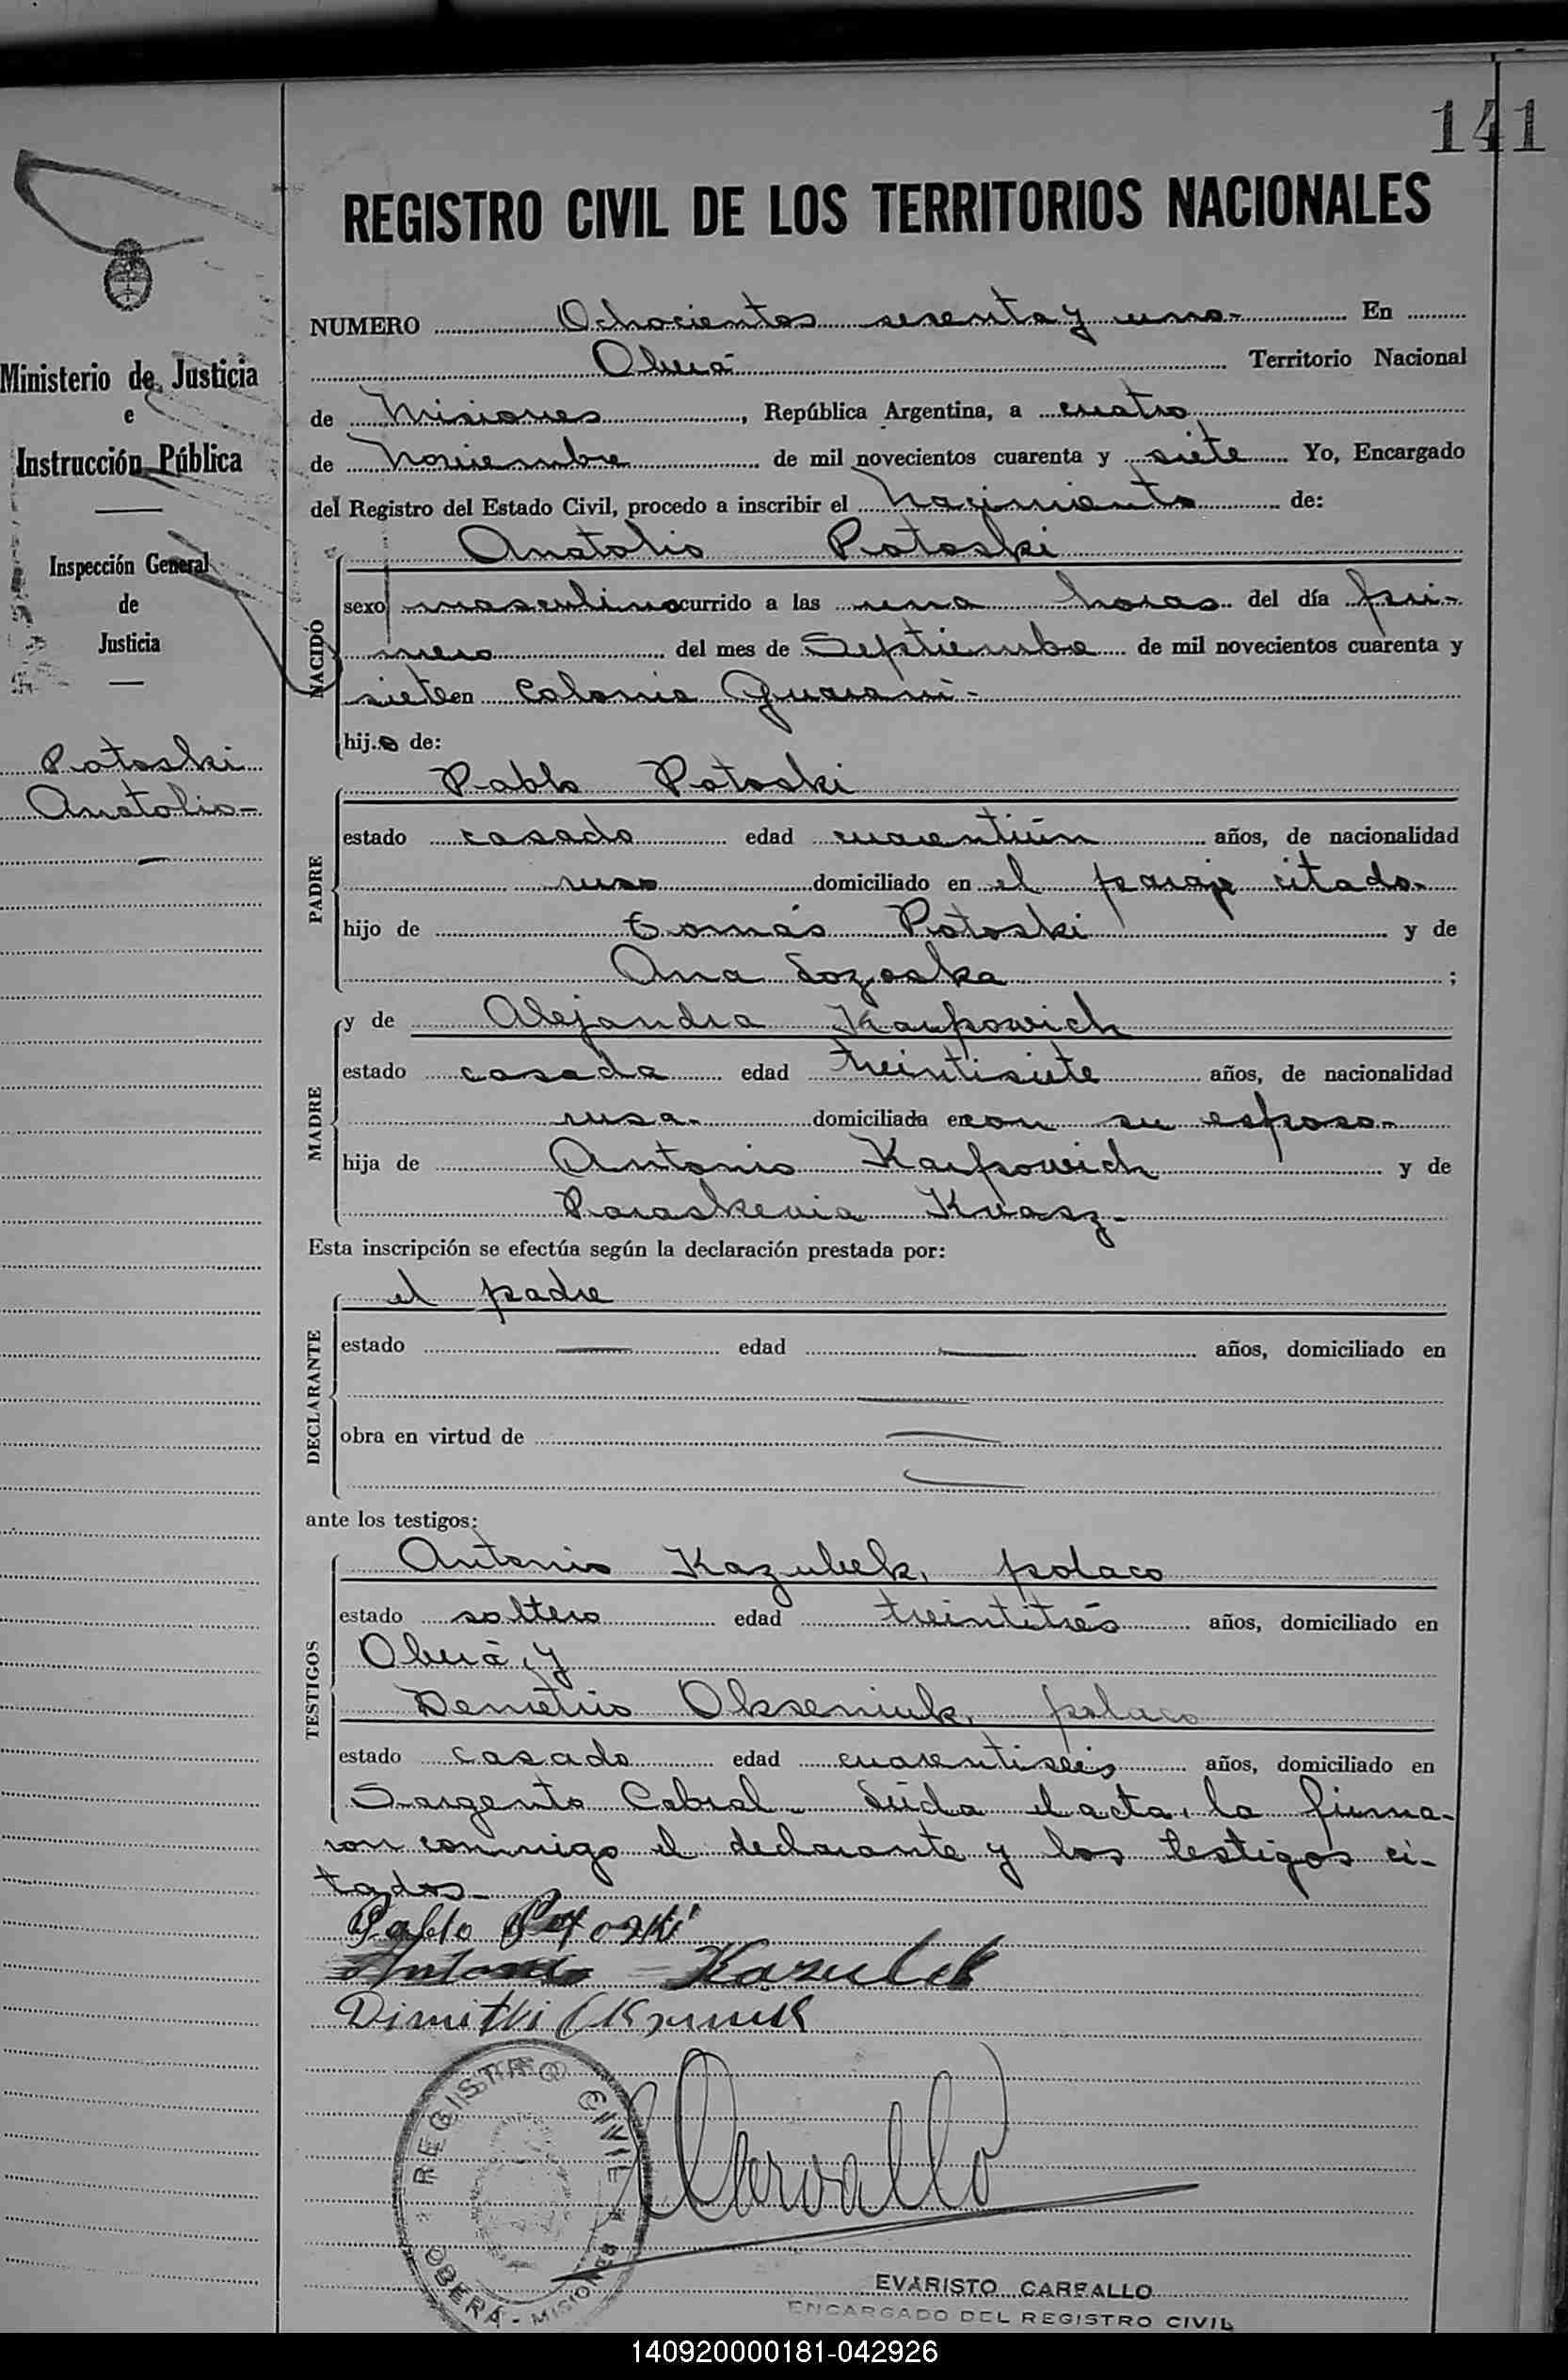 141
REGISTRO CIVIL DE LOS TERRITORIOS NACIONALES
Ministerio de Justicia
e
Instrucción Pública
Inspección General
de
Justicia
Potoski
Anatolio-
NUMERO Ochocientos sesenta y uno- En
Oberá Territorio Nacional
de Misiones, República Argentina, a cuatro
de Noviembre de mil novecientos cuarenta y siete Yo, Encargado
del Registro del Estado Civil, procedo a inscribir el Nacimiento de:
Anatolio Potoski
NACIDÓ
sexo masculino ocurrido a las una horas del día pri-
mero del mes de Septiembre de mil novecientos cuarenta y
siete en Colonia Guaraní-
hijo de:
Pablo Potoski
PADRE
estado casado edad cuarentiún años, de nacionalidad
ruso domiciliado en el paraje citado.
hijo de Tomás Potoski y de
Ana Sozoska ;
y de Alejandra Karpowich
MADRE
estado casada edad treintisiete años, de nacionalidad
rusa. domiciliada en con su esposo-
hija de Antonio Karpowich y de
Paraskevia Kvasz-
Esta inscripción se efectúa según la declaración prestada por:
el padre
DECLARANTE
estado edad años, domiciliado en
obra en virtud de
ante los testigos:
Antonio Kazubek, polaco
TESTIGOS
estado soltero edad treintitrés años, domiciliado en
Oberá, y
Demetrio Okseniuk, polaco
estado casado edad cuarentiseis años, domiciliado en
Sargento Cabral. Leída el acta, la firma-
ron conmigo el declarante y los testigos ci-
tados-
Pablo Potoski
Antonio Kazubek
Dimitri
REGISTRO CIVIL
OBERÁ - MISIONES
Carvallo
EVARISTO CARVALLO
ENCARGADO DEL REGISTRO CIVIL
140920000181-042926